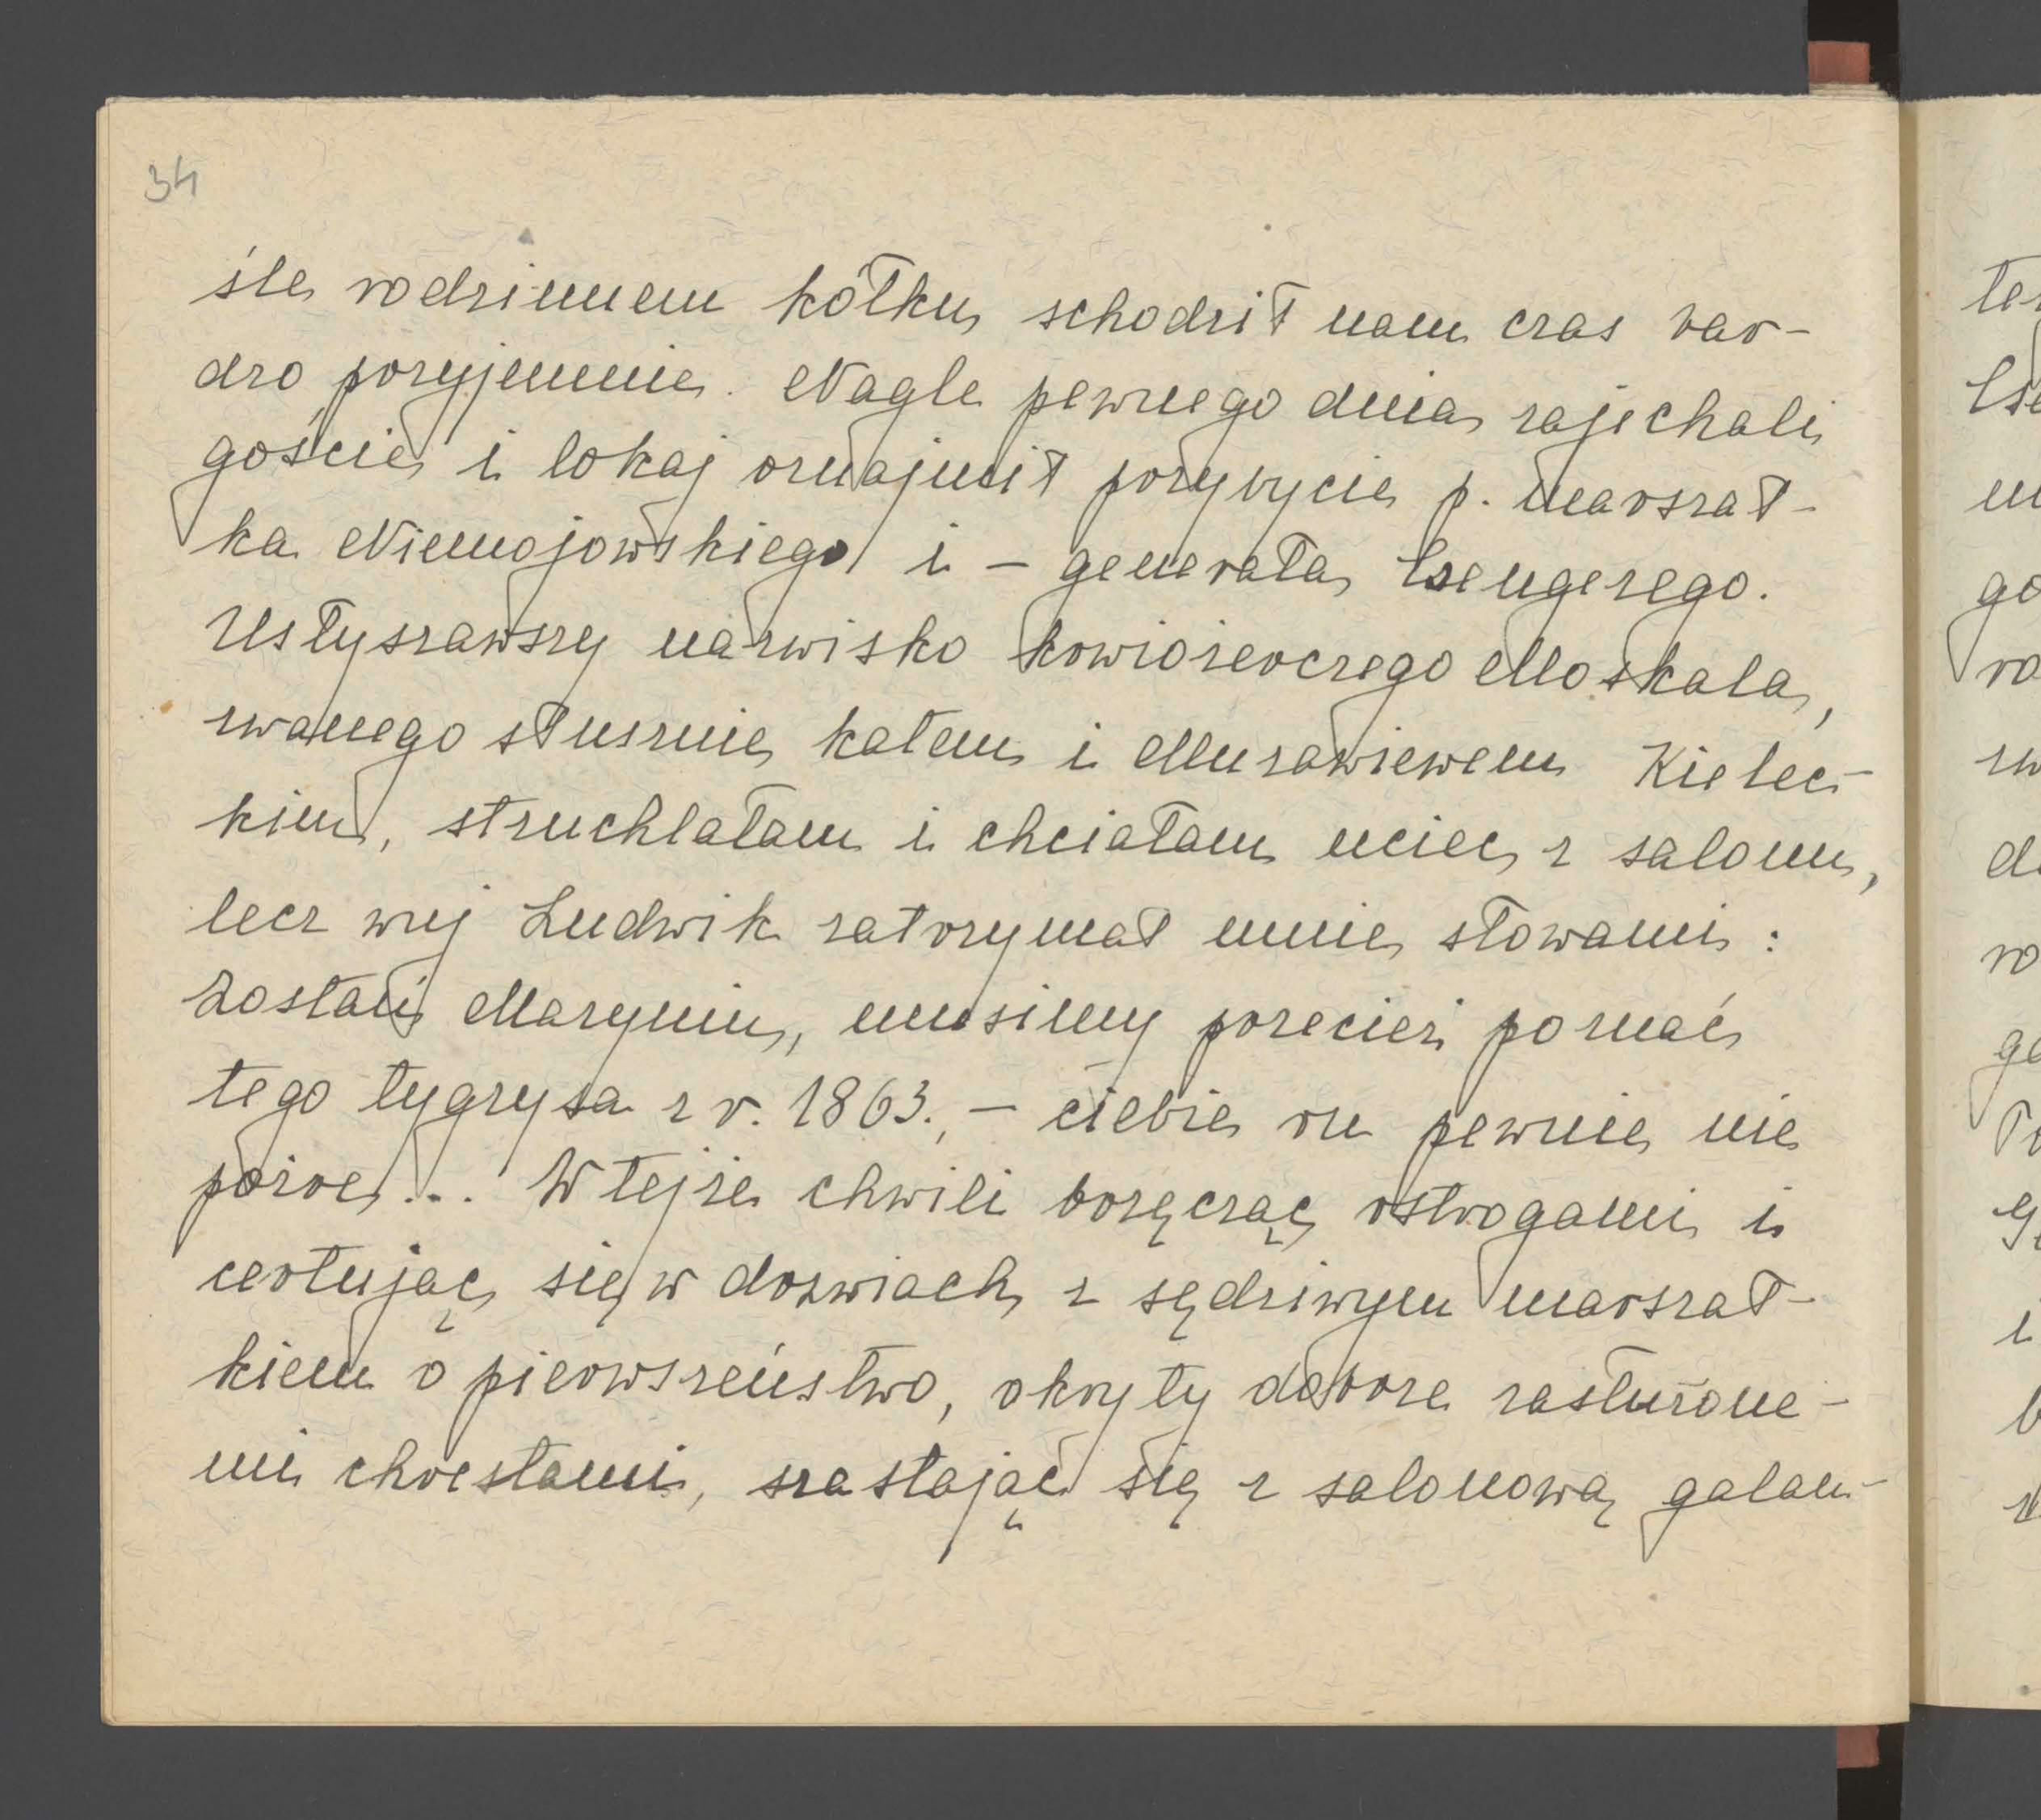 34
śle rodzinnem kółku schodził nam czas bar-
dzo przyjemnie. Nagle pewnego dnia zajechali
goście i lokaj oznajmił przybycie p. marszał-
ka Niemojowskiego i – generała Czengerego.
Usłyszawszy nazwisko krwiożerczego Moskala,
zwanego słusznie katem i Murawiewem Kielec-
kim, struchlałam i chciałam uciec z salonu,
lecz wuj Ludwik zatrzymał mnie słowami:
Zostań Maryniu, musimy przecież poznać
tego tygrysa z r. 1863., – ciebie on pewnie nie
pożre... W tejże chwili brzęcząc ostrogami i
certując się w drzwiach z sędziwym marszał-
kiem o pierwszeństwo, okryty dobrze zasłużone-
mi chrestami, szastając się z salonową galan-